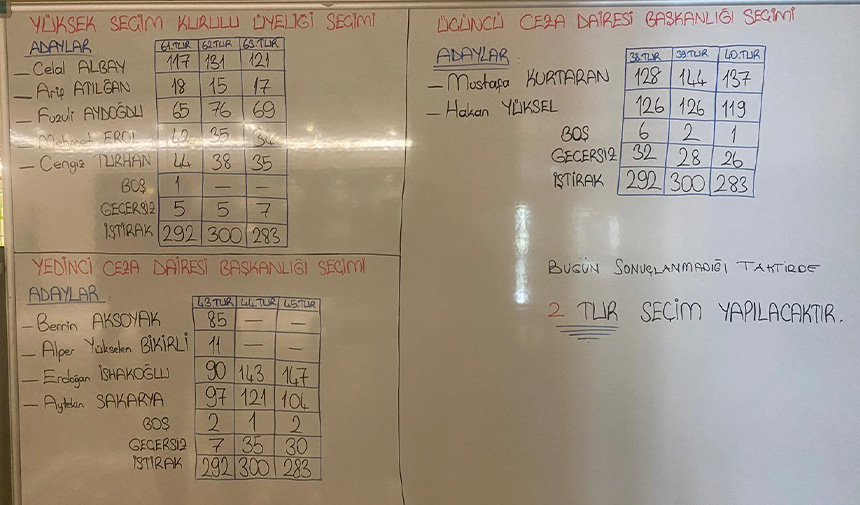 YÜKSEK SEÇİM KURULU ÜYELİĞİ SEÇİMİ
ADAYLAR 61.TUR 62.TUR 63.TUR
— Celal ALBAY 117 131 121
— Arif ATILĞAN 18 15 17
— Fuzuli AYDOĞDU 65 76 69
— Mehmet EROL 42 35 34
— Cengiz TURHAN 44 38 35
BOŞ 1 — —
GEÇERSİZ 5 5 7
İŞTİRAK 292 300 283
YEDİNCİ CEZA DAİRESİ BAŞKANLIĞI SEÇİMİ
ADAYLAR 43.TUR 44.TUR 45.TUR
— Berrin AKSOYAK 85 — —
— Alper Yükselen BİKİRLİ 11 — —
— Erdoğan İSHAKOĞLU 90 143 147
— Aytekin SAKARYA 97 121 104
BOŞ 2 1 2
GEÇERSİZ 7 35 30
İŞTİRAK 292 300 283
ÜÇÜNCÜ CEZA DAİRESİ BAŞKANLIĞI SEÇİMİ
ADAYLAR 38.TUR 39.TUR 40.TUR
— Mustafa KURTARAN 128 144 137
— Hakan YÜKSEL 126 126 119
BOŞ 6 2 1
GEÇERSİZ 32 28 26
İŞTİRAK 292 300 283
BUGÜN SONUÇLANMADIĞI TAKTİRDE
2 TUR SEÇİM YAPILACAKTIR.